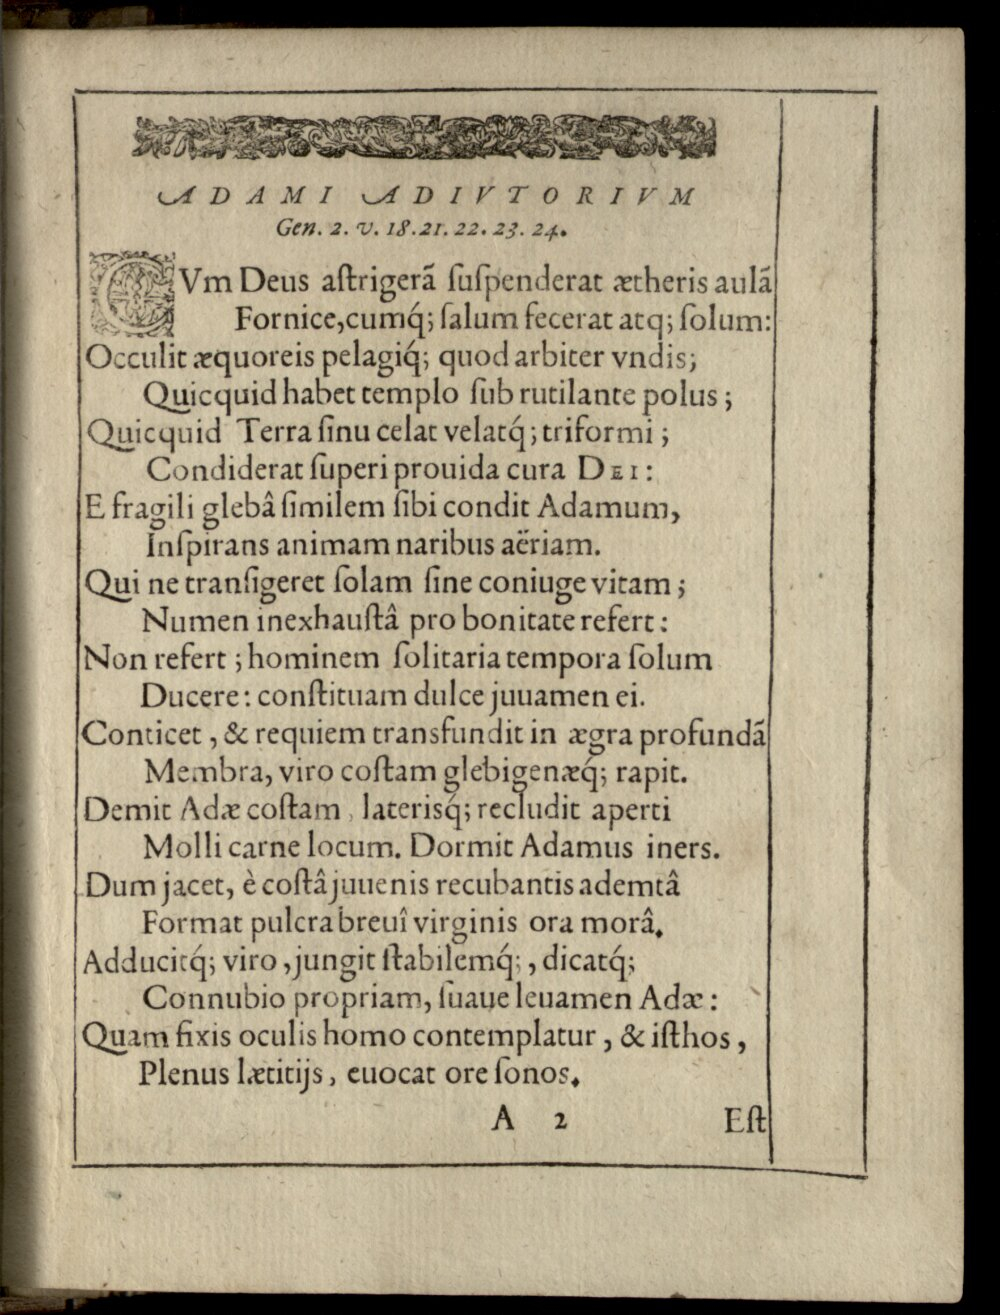 ADAMI ADIVTORIVM
Gen. 2. v. 18. 21. 22. 23. 24.
CVm Deus aſtrigerã ſuſpenderat ætheris aulã
Fornice, cumq́; ſalum fecerat atq; ſolum:
Occulit æquoreis pelagiq́; quod arbiter vndis;
Quicquid habet templo ſub rutilante polus;
Quicquid Terra ſinu celat velatq́; triformi;
Condiderat ſuperi prouida cura DEI:
E fragili glebâ ſimilem ſibi condit Adamum,
Inſpirans animam naribus aëriam.
Qui ne tranſigeret ſolam ſine coniuge vitam;
Numen inexhauſtâ pro bonitate refert:
Non refert; hominem ſolitaria tempora ſolum
Ducere: conſtituam dulce juuamen ei.
Conticet, & requiem transfundit in ægra profundã
Membra, viro coſtam glebigenæq́; rapit.
Demit Adæ coſtam, laterisq́; recludit aperti
Molli carne locum. Dormit Adamus iners.
Dum jacet, è coſtâ juuenis recubantis ademtâ
Format pulcra breuî virginis ora morâ.
Adducitq́; viro, jungit ſtabilemq́;, dicatq́;
Connubio propriam, ſuaue leuamen Adæ:
Quam fixis oculis homo contemplatur, & iſthos,
Plenus lætitijs, euocat ore ſonos.
A 2 Eſt